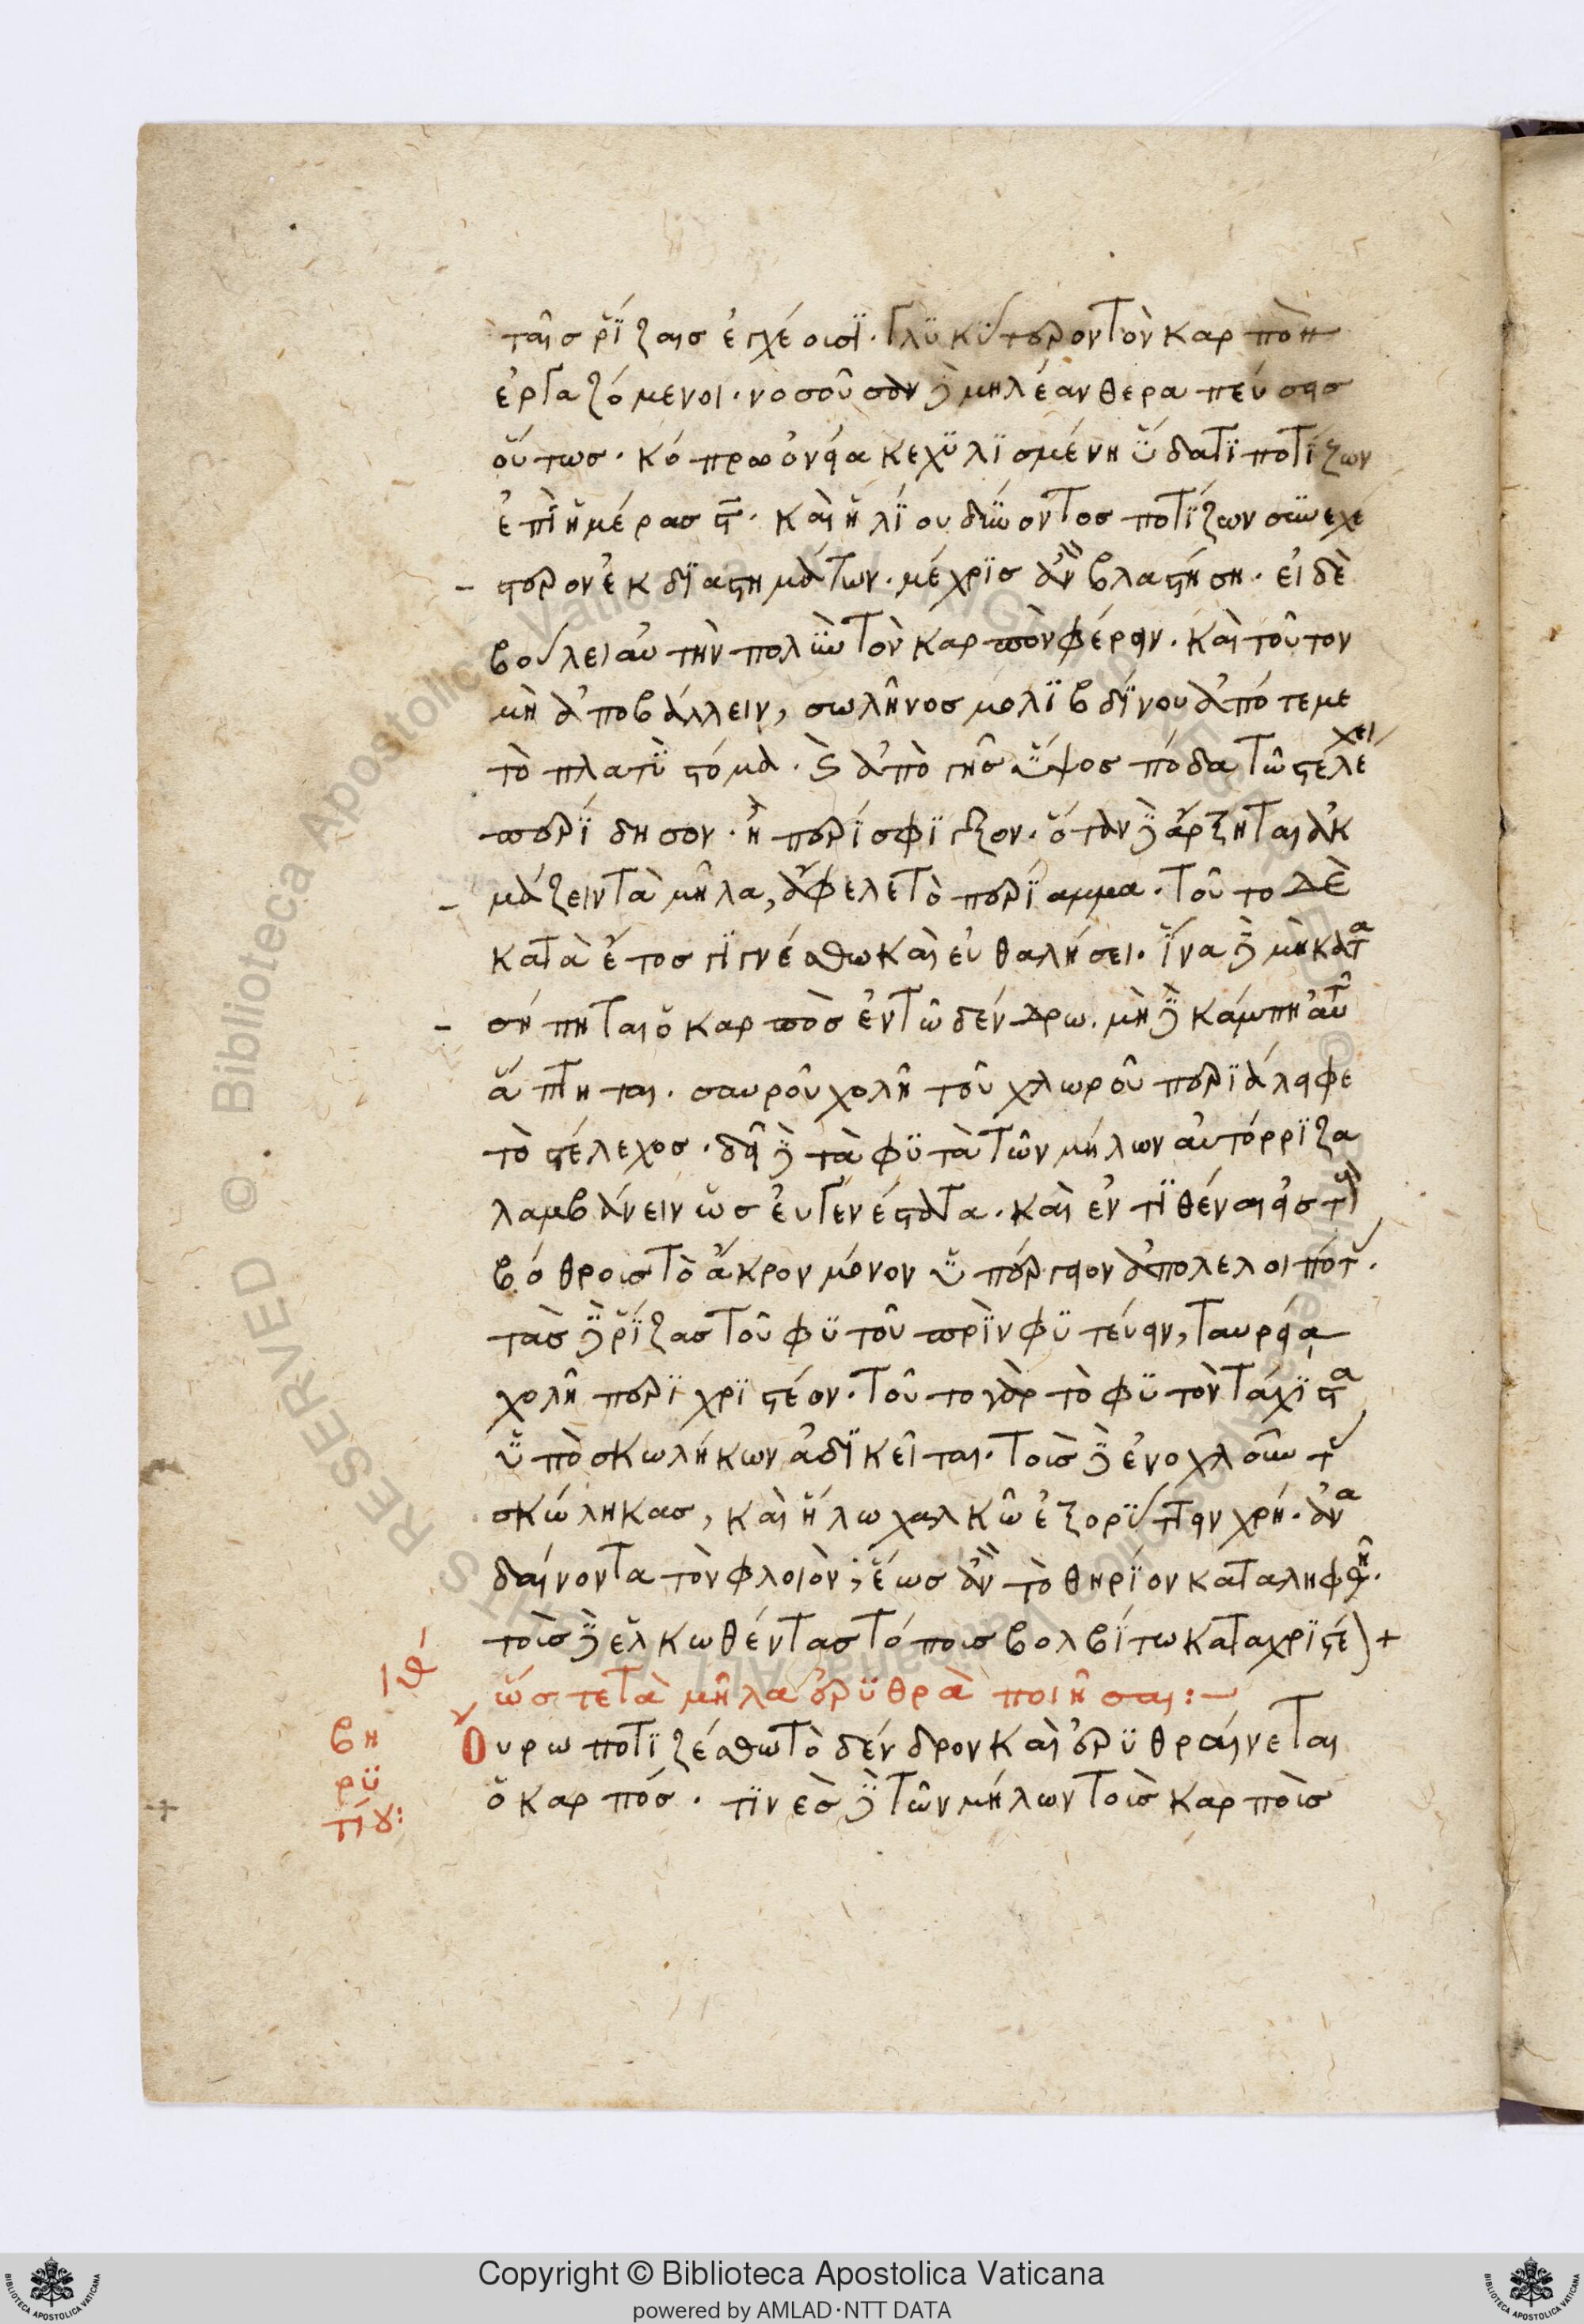 ταῖς ρίζαις ἐγχέουσι. γλυκύτερον τὸν καρπὸν
ἐργαζόμενοι. νοσοῦσαν δὲ μηλέαν θεραπεύσεις
οὕτως. κόπρω ὀνεία κεχυλισμένη ὕδατι ποτίζων
ἐπὶ ἡμέρας ϛ. καὶ ἡλίου δύνοντος ποτίζων συνεχέ
στερον ἐκ διαστημάτων. μέχρις ἂν βλαστήση. εἰ δὲ
βούλει αὐτὴν πολὺν τὸν καρπὸν φέρειν. καὶ τοῦτον
μὴ ἀποβάλλειν, σωλῆνος μολιβδίνου ἀπότεμε
τὸ πλατὺ στόμα. καὶ ἀπὸ γῆς ὕψος πόδα τῶ στελέχει
περίδησον. ἢ περίσφιγξον. ὅταν δὲ ἄρξηται ἀκ
μάζειν τὰ μῆλα, ἄφελε τὸ περίαμμα. τοῦτο δὲ
κατὰ ἔτος γιγνέσθω καὶ εὐθαλήσει. ἵνα δὲ μὴ κατα
σήπηται ὁ καρπὸς ἐν τῶ δένδρω. μὴ δὲ κάμπη αὐτοῦ
ἅπτηται. σαυροῦ χολῆ τοῦ χλωροῦ περιάλειφε
τὸ στέλεχος. δεῖ δὲ τὰ φυτὰ τῶν μήλων αὐτόρριζα
λαμβάνειν ὡς εὐγενέστατα. καὶ ἐντιθέναι εἰς τοὺς
βόθρους τὸ ἄκρον μόνον ὑπέργειον ἀπολελοιπότας.
τὰς δὲ ρίζας τοῦ φυτοῦ πρὶν φυτεύειν, ταυρεία
χολῆ περιχριστέον. τοῦτο γὰρ τὸ φυτὸν τάχιστα
ὑπὸ σκωλήκων ἀδικεῖται. τοὺς δὲ ἐνοχλοῦντας
σκώληκας, καὶ ἥλω χαλκῶ ἐξορύττειν χρή. ἀνα
δαίνοντα τὸν φλοιὸν, ἕως ἂν τὸ θηρίον καταληφθῆ.
τοὺς δὲ ἑλκωθέντας τόπους βολβίτω καταχριστέον +
ιθ
ὥστε τὰ μῆλα ἐρυθρὰ ποιῆσαι:
βη
ρυ
τίου:
Οὔρω ποτιζέσθω τὸ δένδρον καὶ ἐρυθραίνεται
ὁ καρπός. τινὲς δὲ τῶν μήλων τοὺς καρποὺς
Copyright © Biblioteca Apostolica Vaticana
powered by AMLAD·NTT DATA